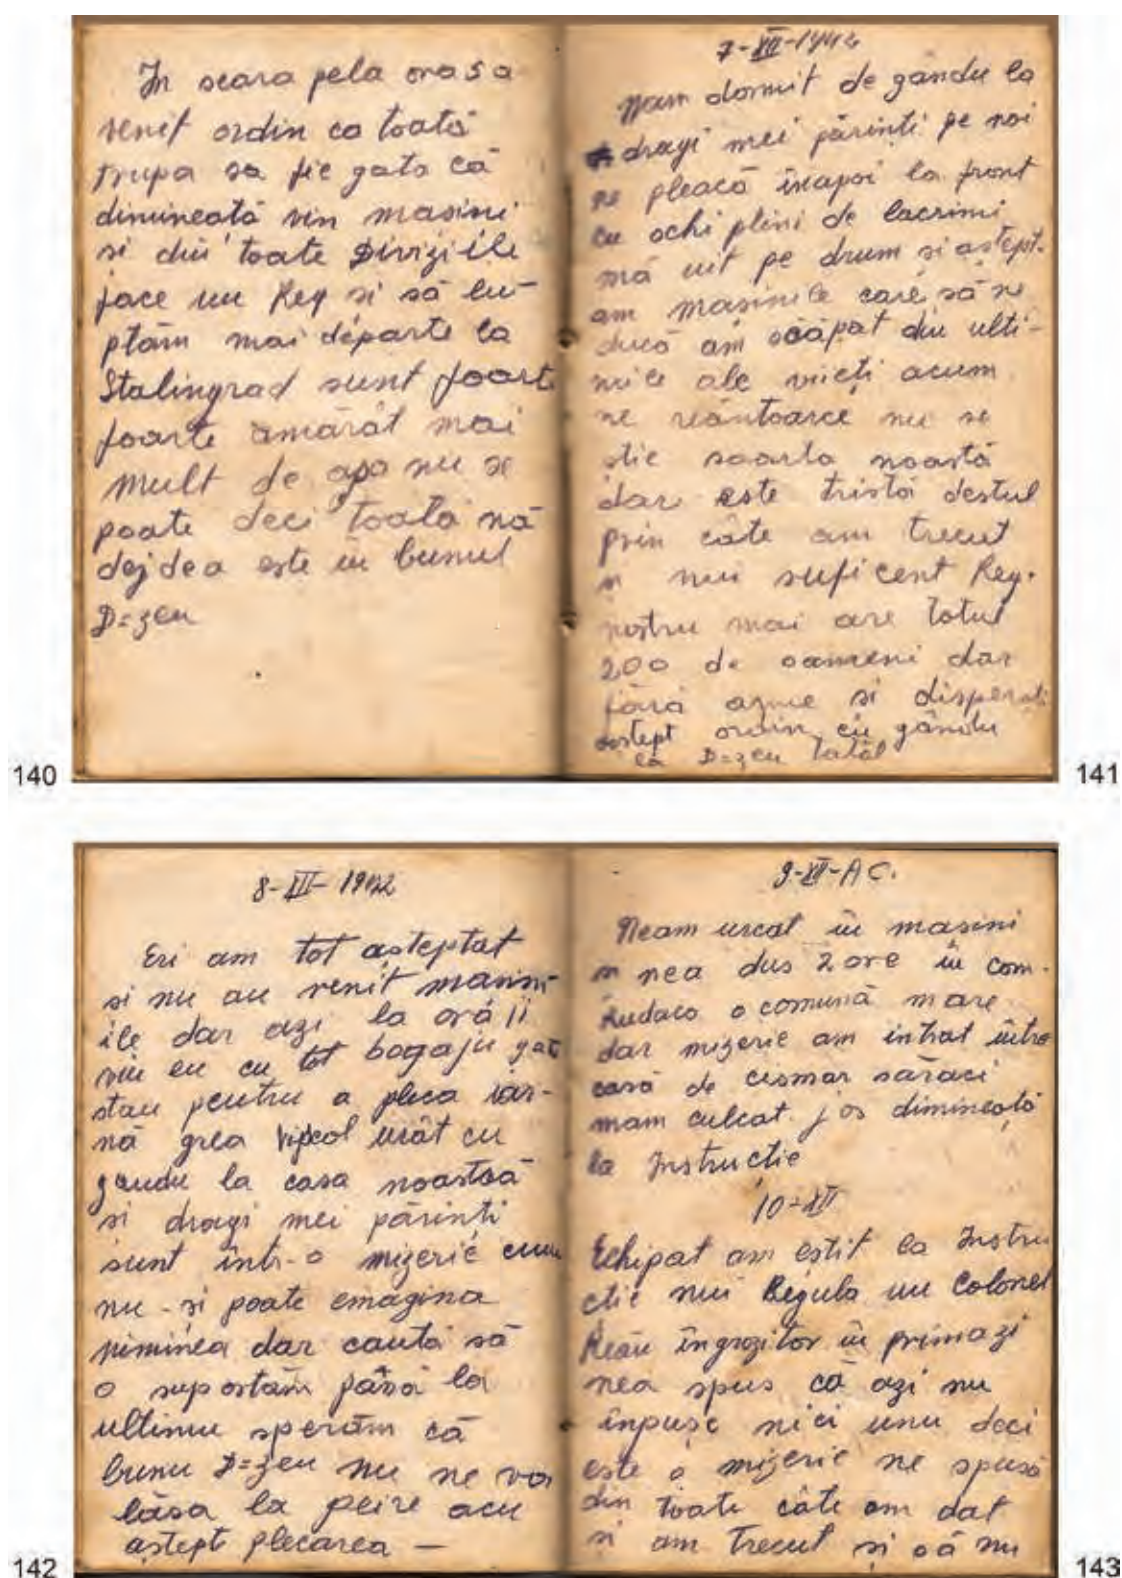 In seara pela ora 5 a
venit ordin ca toată
trupa sa fie gata că
dimineată vin masini
si din toate Diviziile
face un Reg si să lu-
ptăm mai départe la
Stalingrad sunt foarte
foarte amărât mai
mult de apa nu se
poate deci toată nă
dejdea este in bunul
D=zeu
140
7-XII-1942
Nam dormit de gându la
dragi mei părinti pe noi
ne pleacă înapoi la front
cu ochi plini de lacrimi
mă uit pe drum si astept-
am masinile care să ne
ducă am scăpat din ulti-
mile ale vieți acum
ne reântoarce nu se
stie soarta noastă
dar este tristă destul
prin câte am trecut
si nui suficent Reg.
nostru mai are totul
200 de oameni dar
fără arme si disperati
astept ordin cu gându
la D=zeu tatăl
141
8-XII-1942
Eri am tot așteptat
si nu au venit masini
ile dar azi la oră 11
viu eu cu tot bogaju gata
stau pentru a pleca iar-
nă grea vipcol urât cu
gandu la casa noastaă
si dragi mei părinti
sunt într-o mizerie cum
nu-si poate emagina
niminea dar caută să
o suportăm până la
ultimu sperăm că
bunu D=zeu nu ne va
lăsa la peire acu
aștept plecarea —
142
9-XII-AC.
Neam urcat în masini
si nea dus 2 ore in com.
Rudaco o comună mare
dar mizerie am intrat într-o
casă de cismar săraci
mam culcat jos dimineață
la Instrucție
10-XII
Echipat am esit la Instru
ctie nui Regula un Colonel
Reău îngrozitor în prima zi
nea spus că azi nu
înpușc nici unu deci
este o mizerie ne spusă
din toate câte am dat
si am trecut și să nu
143